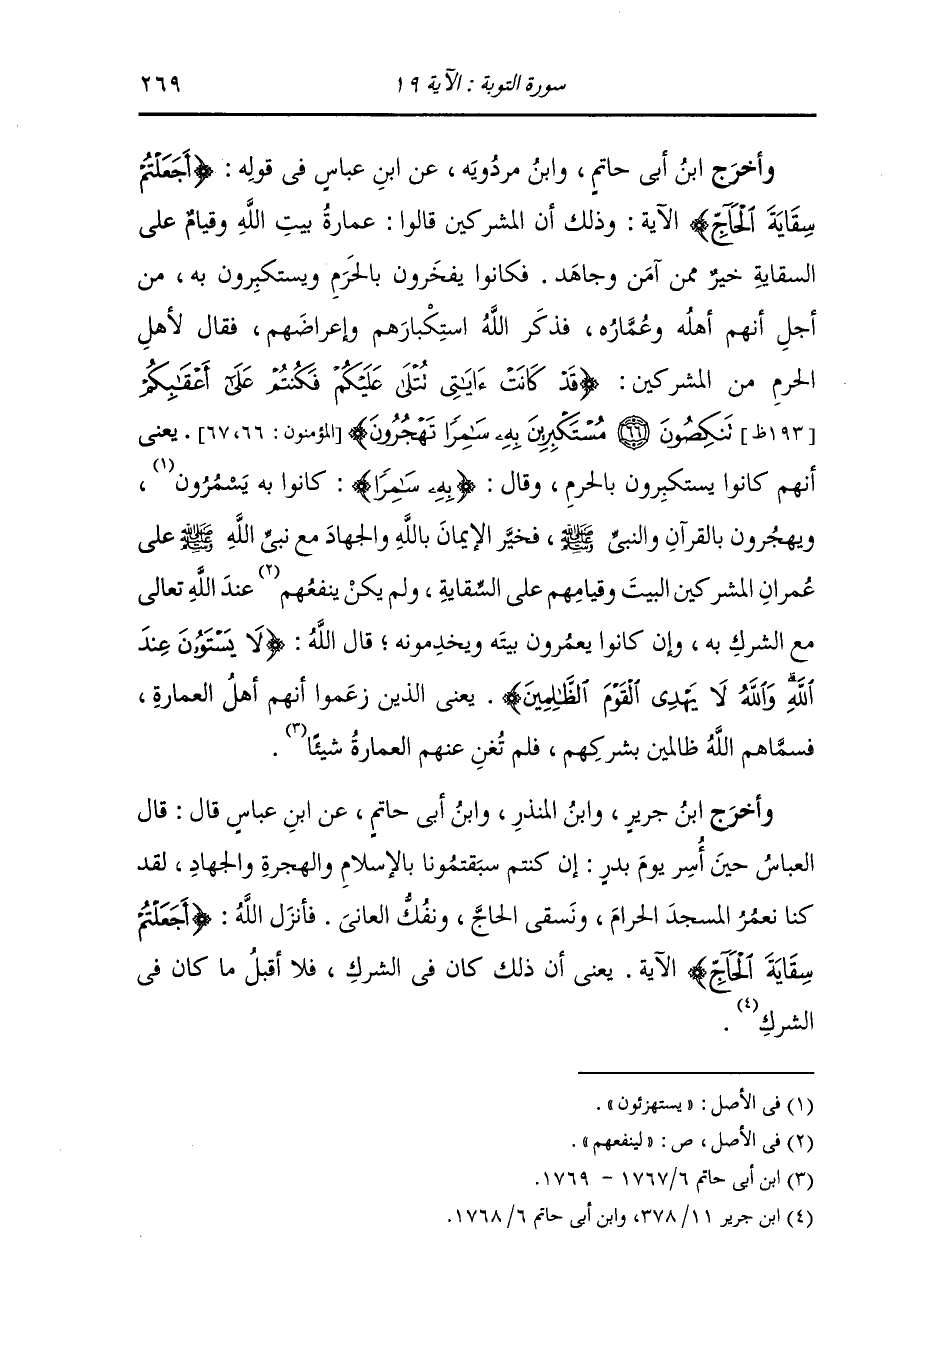 سورة التوبة : الآية ١٩ ٢٦٩
وأخرَج ابنُ أبى حاتمٍ ، وابنُ مردُويَه ، عن ابنِ عباسٍ فى قولِه : ﴿أَجَعَلْتُمْ
سِقَايَةَ ٱلْحَآجِّ﴾ الآية : وذلك أن المشركين قالوا : عمارةُ بيتِ اللَّهِ وقيامٌ على
السقايةِ خيرٌ ممن آمَن وجاهَد . فكانوا يفخَرون بالحَرَمِ ويستكبِرون به ، من
أجلِ أنهم أهلُه وعُمَّارُه ، فذكَر اللَّهُ استِكْبارَهم وإعراضَهم ، فقال لأهلِ
الحرمِ من المشركين : ﴿قَدْ كَانَتْ ءَايَٰتِى تُتْلَىٰ عَلَيْكُمْ فَكُنتُمْ عَلَىٰٓ أَعْقَٰبِكُمْ
[١٩٣ظ] تَنكِصُونَ ﴿٦٦﴾ مُسْتَكْبِرِينَ بِهِۦ سَٰمِرًا تَهْجُرُونَ﴾ [المؤمنون : ٦٦، ٦٧] . يعنى
أنهم كانوا يستكبِرون بالحرمِ ، وقال : ﴿بِهِۦ سَٰمِرًا﴾ : كانوا به يَسْمُرُون(١) ،
ويهجُرون بالقرآنِ والنبىِّ ﷺ ، فخيَّر الإيمانَ باللَّهِ والجهادَ مع نبىِّ اللَّهِ ﷺ على
عُمرانِ المشركين البيتَ وقيامِهم على السِّقايةِ ، ولم يكنْ ينفعُهم(٢) عندَ اللَّهِ تعالى
مع الشركِ به ، وإن كانوا يعمُرون بيتَه ويخدِمونه ؛ قال اللَّهُ : ﴿لَا يَسْتَوُۥنَ عِندَ
ٱللَّهِۗ وَٱللَّهُ لَا يَهْدِى ٱلْقَوْمَ ٱلظَّٰلِمِينَ﴾ . يعنى الذين زعَموا أنهم أهلُ العمارةِ ،
فسمَّاهم اللَّهُ ظالمين بشركِهم ، فلم تُغنِ عنهم العمارةُ شيئًا(٣) .
وأخرَج ابنُ جريرٍ ، وابنُ المنذرِ ، وابنُ أبى حاتمٍ ، عن ابنِ عباسٍ قال : قال
العباسُ حينَ أُسِر يومَ بدرٍ : إن كنتم سبَقتمُونا بالإسلامِ والهجرةِ والجهادِ ، لقد
كنا نعمُرُ المسجدَ الحرامَ ، ونَسقى الحاجَّ ، ونفُكُّ العانىَ . فأنزَل اللَّهُ : ﴿أَجَعَلْتُمْ
سِقَايَةَ ٱلْحَآجِّ﴾ الآية . يعنى أن ذلك كان فى الشركِ ، فلا أقبلُ ما كان فى
الشركِ(٤) .
(١) فى الأصل : «يستهزئون» .
(٢) فى الأصل ، ص : «لينفعهم» .
(٣) ابن أبى حاتم ١٧٦٧/٦ – ١٧٦٩.
(٤) ابن جرير ١١/ ٣٧٨، وابن أبى حاتم ٦/ ١٧٦٨.